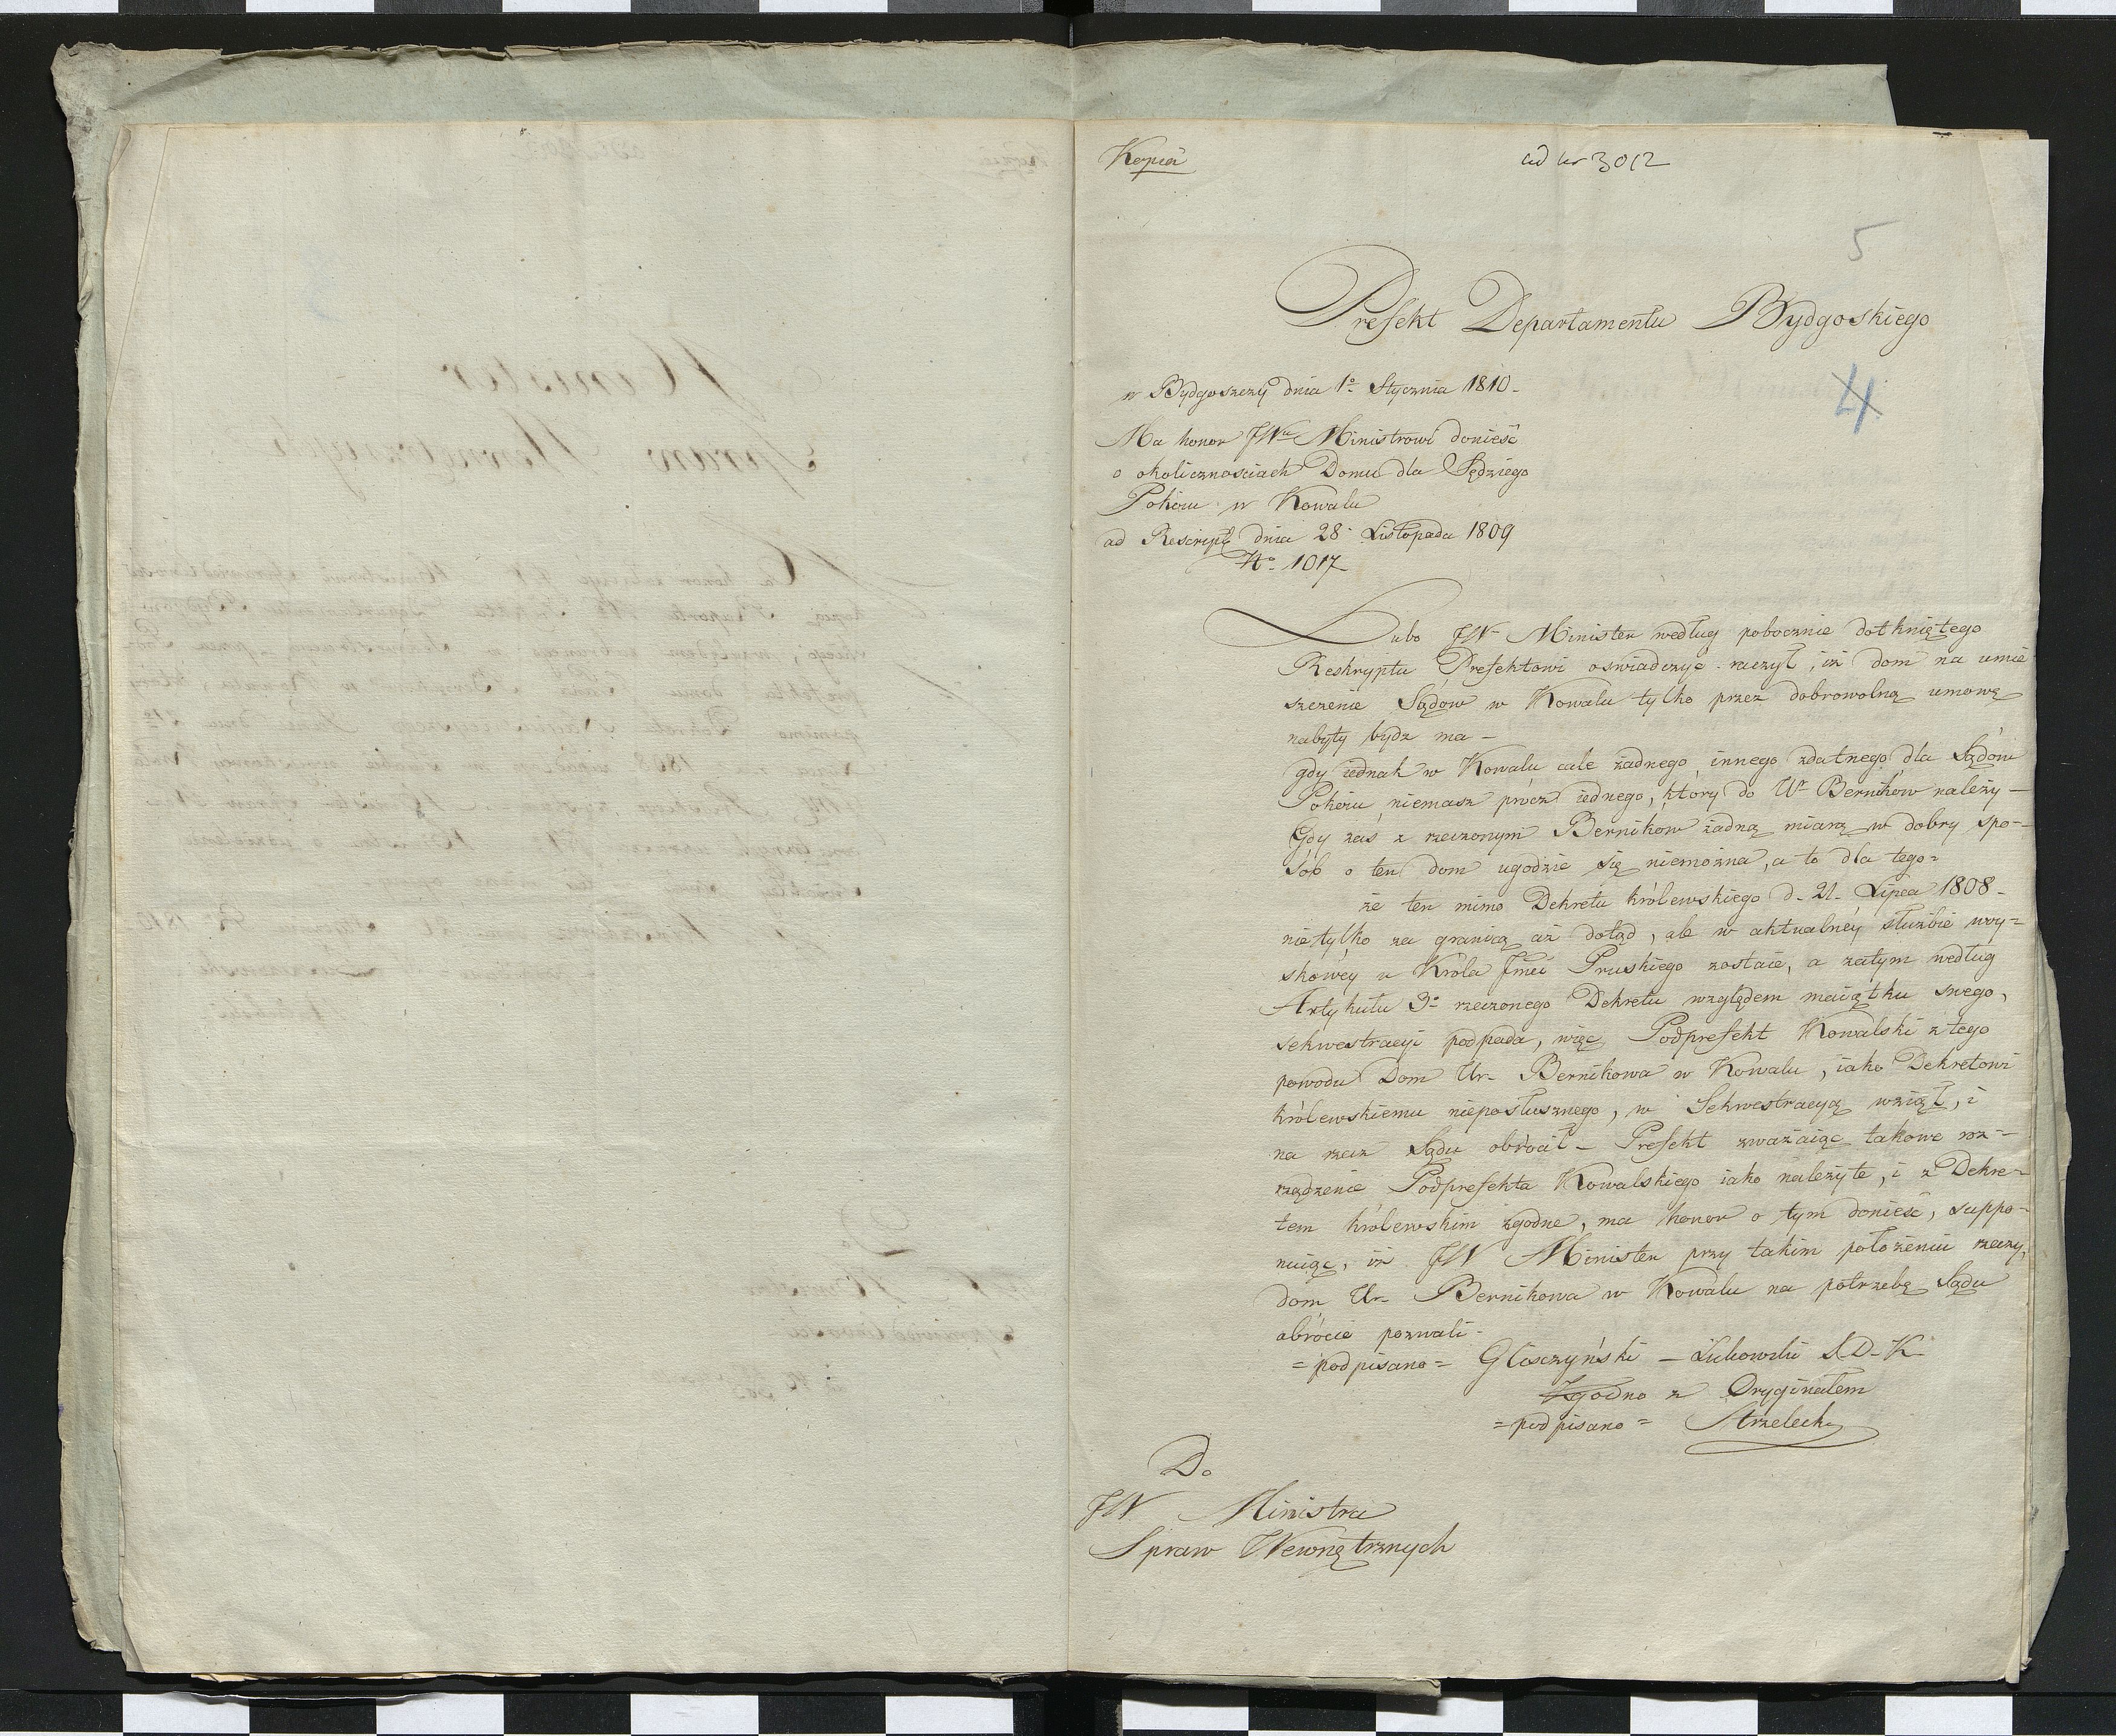 Kopia
ad nr 3012
5
Prefekt Departamentu Bydgoskiego
4
w Bydgoszczy dnia 1o Stycznia 1810-
Ma honor JWu Ministrowi donieść
o okolicznosciach Domu dla Sędziego
Pokoiu w Kowalu
ad Rescript dnia 28 Listopada 1809
No 1017
Lubo JW Minister według pobocznie dotkniętego
Reskryptu Prefektowi oswiadczyć raczył, iż dom na umie
szczenie Sądów w Kowalu tylko przez dobrowolną umowę
nabyty bydz ma -
gdy iednak w Kowalu cale żadnego innego zdatnego dla Sądów
Pokoiu niemasz procz iednego, który do Ur Berników należy -
Gdy zas z rzeczonym Bernikow żadną miarą w dobry spo-
sób o ten dom ugodzie się niemożna, a to dla tego=
że ten mimo Dekretu królewskiego d. 21. Lipca 1808 -
nietylko za granicą aż dotąd, ale w aktualney służbie woy=
skowey u Króla Jmci Pruskiego zostaie, a zatym według
Artykułu 3o rzeczonego Dekretu względem maiątku swego,
sekwestracyi podpada, więc Podprefekt Kowalski z tego
powodu Dom Ur. Bernikowa w Kowalu, iako Dekretowi
królewskiemu nieposłusznego, w Sekwestracyą wziął, i
na rzecz Sądu obrócił - Prefekt zważaiąc takowe roz=
rządzenie Podprefekta Kowalskiego iako należyte, i z Dekre=
tem królewskim zgodne, ma honor o tym donieść, suppo-
nuiąc, iż JW Minister przy takim położeniu rzeczy,
dom Ur. Bernikowa w Kowalu na potrzebę Sądu
obrócić pozwoli -
= podpisano = Gliszczyński - Łukowski S.D-K-
Zgodno z Oryginałem
= podpisano = Strzelecki
Do
JW Ministra
Spraw Wewnętrznych